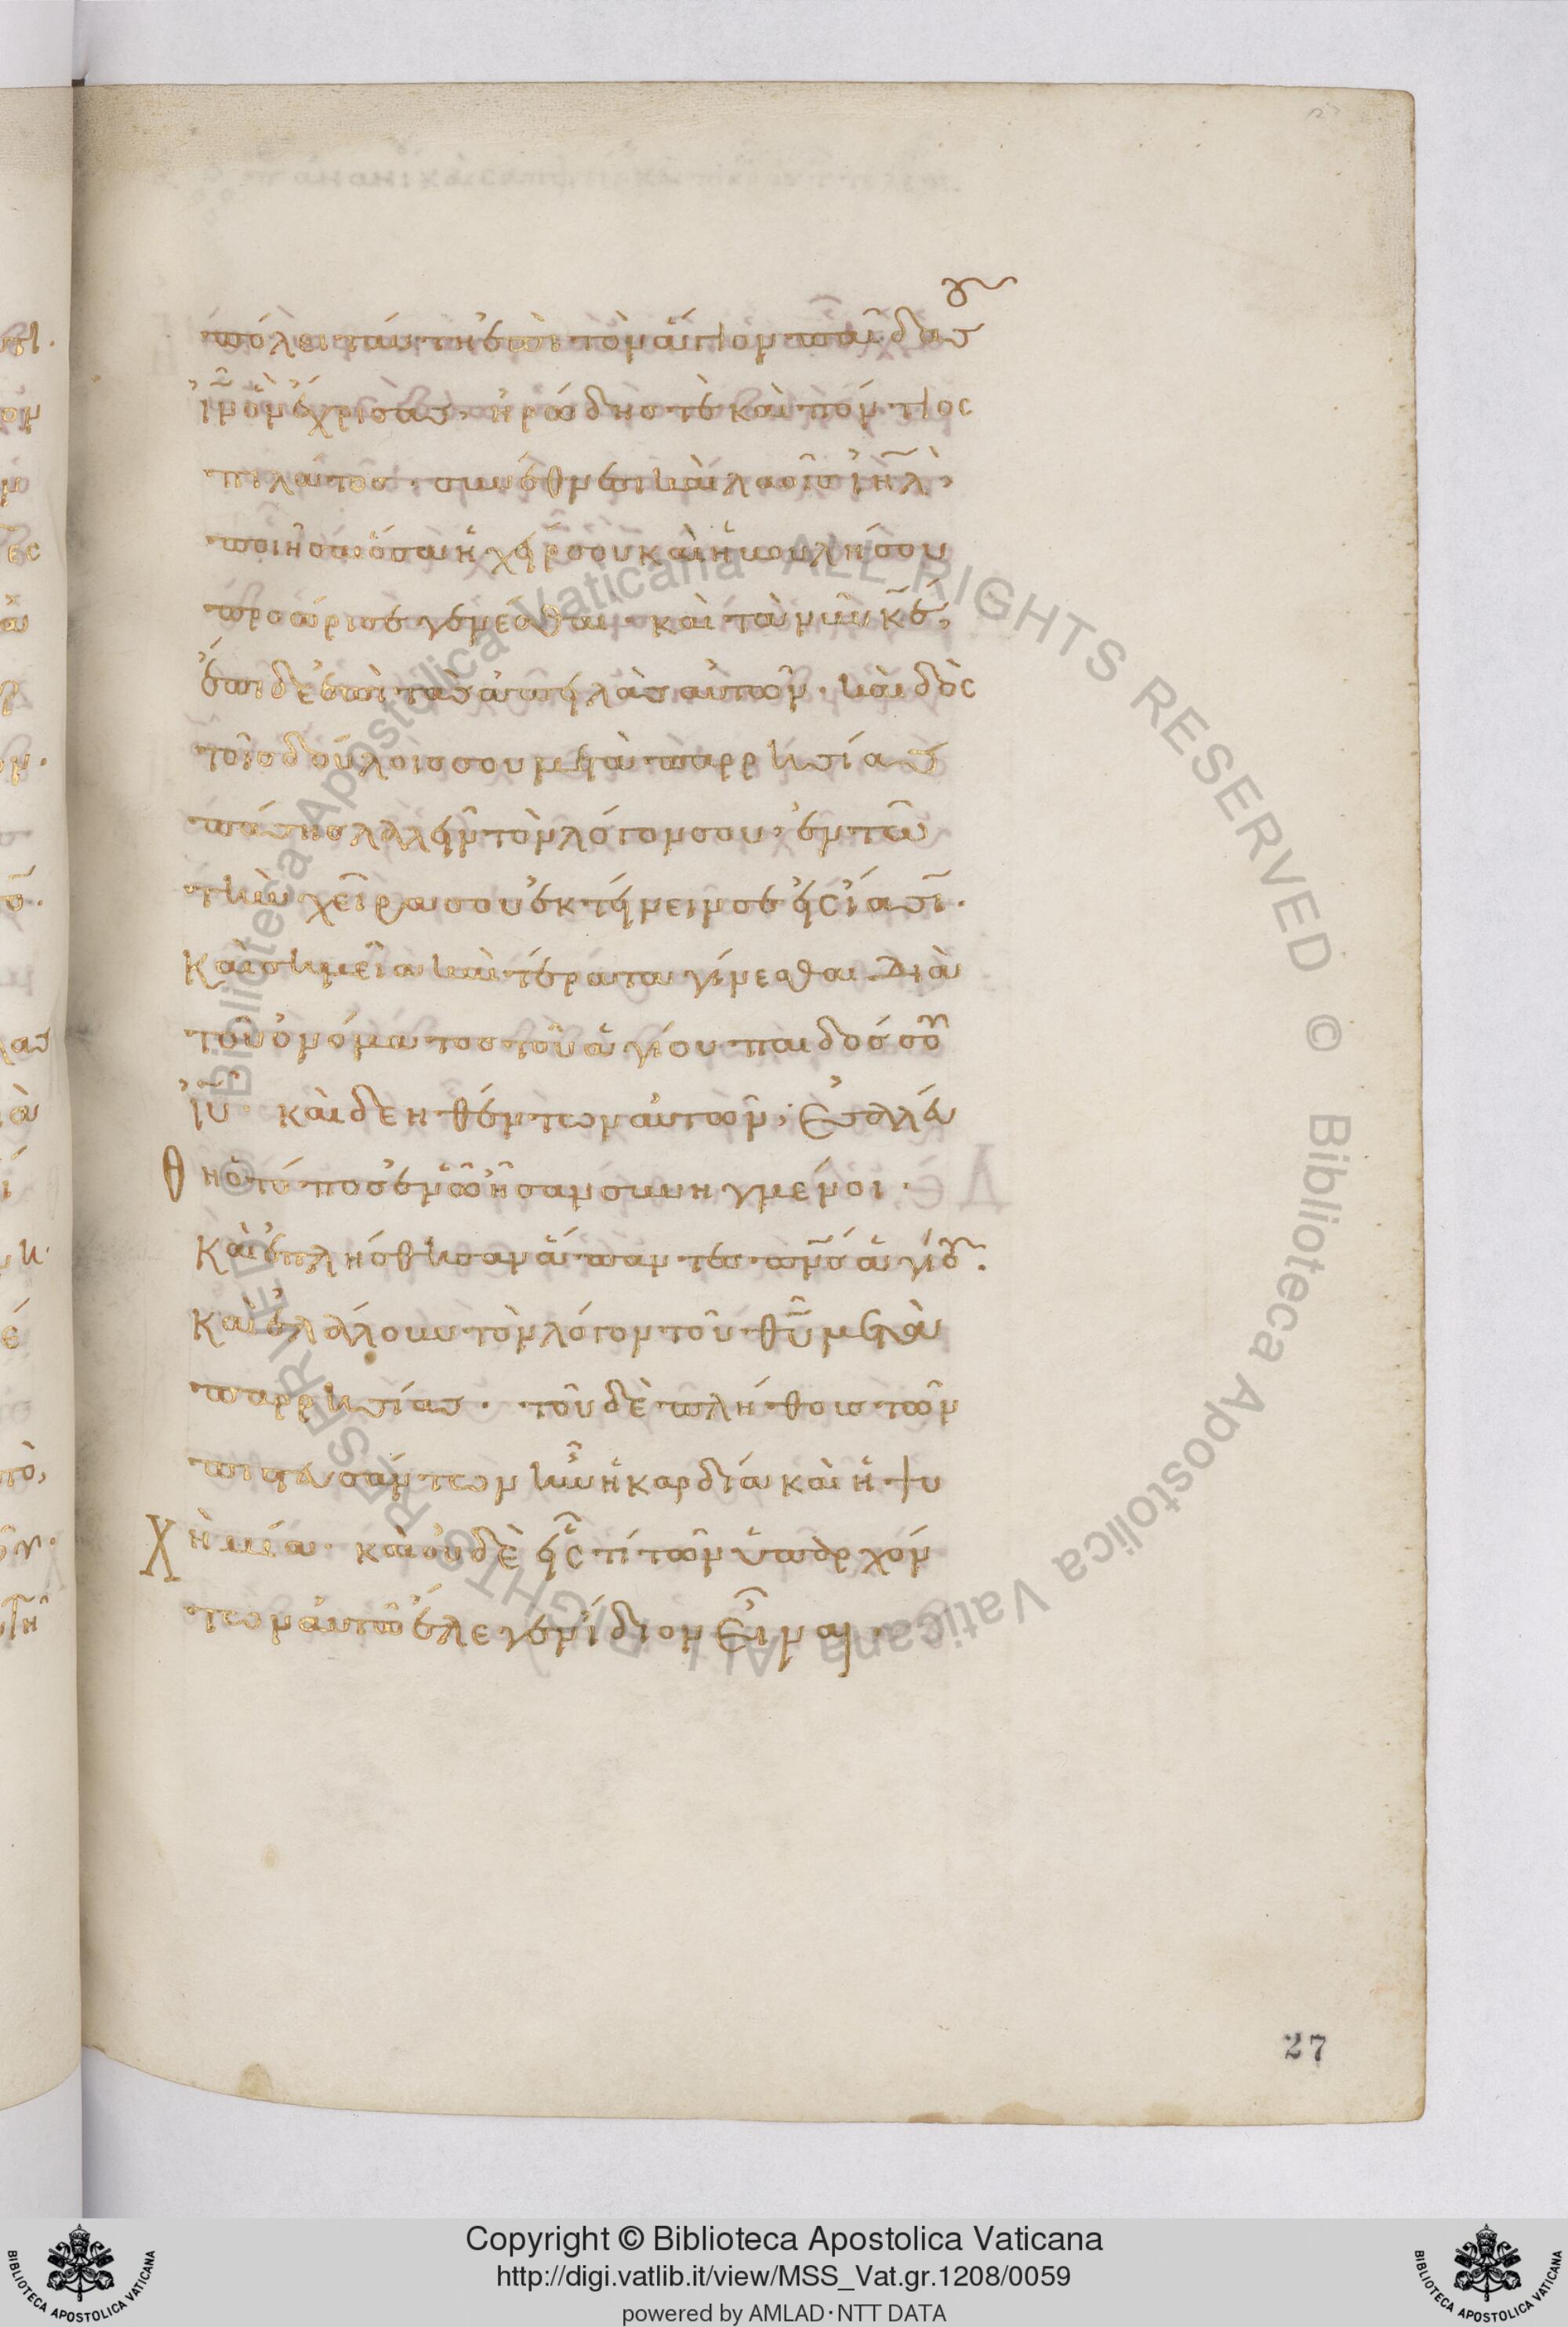 πόλει ταύτη ἐπὶ τὸν ἅγιον παῖδά σου
ἰν̄ ὃν ἔχρισας, ἡρώδης τὲ καὶ πόντιος
πιλᾶτος· σὺν ἔθνεσι καὶ λαοῖς ἰη̄λ,
ποιῆσαι ὅσα ἡ χείρ σου καὶ ἡ βουλή σου
προώρισε γενέσθαι· καὶ τὰ νῦν κ̄ε,
ἔπιδε ἐπὶ τὰς ἀπειλὰς αὐτῶν· καὶ δὸς
τοῖς δούλοις σου μετὰ παρρησίας
πάσης λαλεῖν τὸν λόγον σου· ἐν τῶ
τὴν χεῖρα σου ἐκτείνειν σε εἰς ἴασιν·
Καὶ σημεῖα καὶ τέρατα γίνεσθαι. Διὰ
τοῦ ὀνόματος τοῦ ἁγίου παιδός σου
ἰ̄υ· καὶ δεηθέντων αὐτῶν, ἐσαλεύ
θη ὁ τόπος ἐν ὧ ἦσαν συνηγμένοι·
Καὶ ἐπλήσθησαν ἅπαντες πν̄ς ἁγίου.
Καὶ ἐλάλουν τὸν λόγον τοῦ θῡ μετὰ
παρρησίας· τοῦ δὲ πλήθους τῶν
πιστευσάντων ἦν ἡ καρδία καὶ ἡ ψυ
χὴ μία· καὶ οὐδὲ εἷς τί τῶν ὑπαρχόν
των αὐτῶ ἔλεγεν ἴδιον εἶναι·
27
© Biblioteca Apostolica Vaticana ALL RIGHTS RESERVED © Biblioteca Apostolica Vaticana ALL RIGHTS RESERVED
Copyright © Biblioteca Apostolica Vaticana
http://digi.vatlib.it/view/MSS_Vat.gr.1208/0059
powered by AMLAD·NTT DATA
BIBLIOTECA APOSTOLICA VATICANA
BIBLIOTECA APOSTOLICA VATICANA